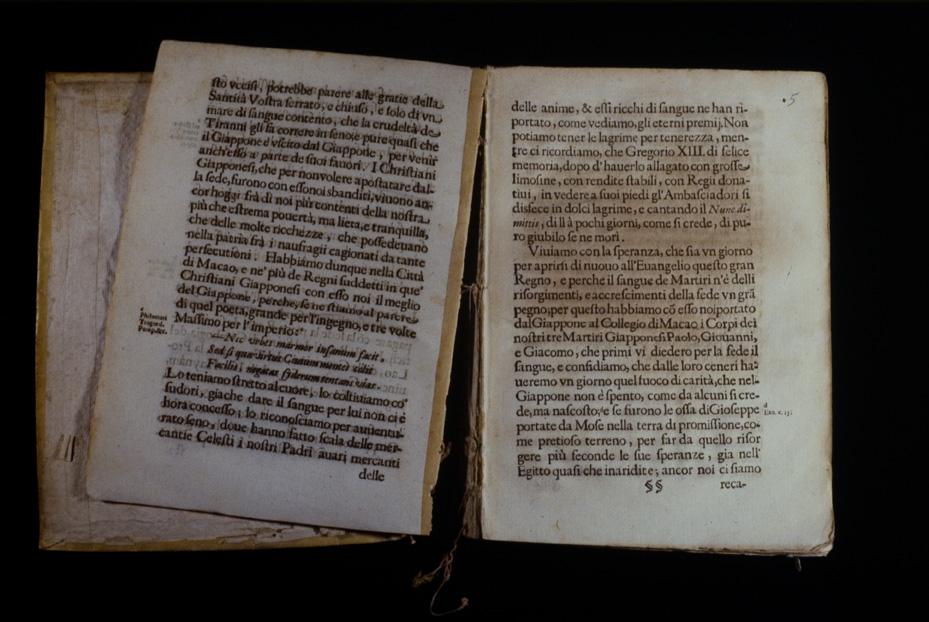 sto vccisi, potrebbe parere alle gratie della
Santità Vostra serrato, e chiuso, e solo di vn
mare di sangue contento, che la crudeltà de
Tiranni gli fà correre in seno; e pure quasi che
il Giappone è vscito dal Giappone, per venir
anch'esso a parte de suoi fauori. I Christiani
Giapponesi, che per non volere apostatare dal-
la fede, furono con esso noi sbanditi, viuono an-
cor hoggi frà di noi più contenti della nostra
più che estrema pouertà, ma lieta, e tranquilla,
che delle molte ricchezze, che possedeuano
nella patria frà i naufragij cagionati da tante
persecutioni. Habbiamo dunque nella Città
di Macao, e ne' più de Regni suddetti in que'
Christiani Giapponesi con esso noi il meglio
del Giappone, perche, se ne stiamo al parere
di quel poeta, grande per l'ingegno, e tre volte
Massimo per l'imperio:
Nec vrbes marmor insanum facit,
Lo teniamo stretto al cuore, lo coltiuiamo co'
sudori, giache dare il sangue per lui non ci è
hora concesso; lo riconosciamo per auuentu-
rato seno, doue hanno fatto scala delle mer-
cantie Celesti i nostri Padri auari mercanti
delle
5
delle anime, & essi ricchi di sangue ne han ri-
portato, come vediamo, gli eterni premij. Non
potiamo tener le lagrime per tenerezza, men-
tre ci ricordiamo, che Gregorio XIII. di felice
memoria, dopo d'hauerlo allagato con grosse
limosine, con rendite stabili, con Regii dona-
tiui, in vedere a suoi piedi gl'Ambasciadori si
disfece in dolci lagrime, e cantando il Nunc di-
mittis, di lì à pochi giorni, come si crede, di pu-
ro giubilo se ne morì.
Viuiamo con la speranza, che sia vn giorno
per aprirsi di nuouo all'Euangelio questo gran
Regno, e perche il sangue de Martiri n'è delli
risorgimenti, e accrescimenti della fede vn grã
pegno; per questo habbiamo cõ esso noi portato
dal Giappone al Collegio di Macao i Corpi dei
nostri tre Martiri Giapponesi Paolo, Giouanni,
e Giacomo, che primi vi diedero per la fede il
sangue, e confidiamo, che dalle loro ceneri ha-
ueremo vn giorno quel fuoco di carità, che nel
Giappone non è spento, come da alcuni si cre-
de, ma nascosto; e se furono le ossa di Gioseppe
portate da Mosè nella terra di promissione, co-
me pretioso terreno, per far da quello risor
gere più seconde le sue speranze, gia nell'
Egitto quasi che inaridite; ancor noi ci siamo
§§ reca-